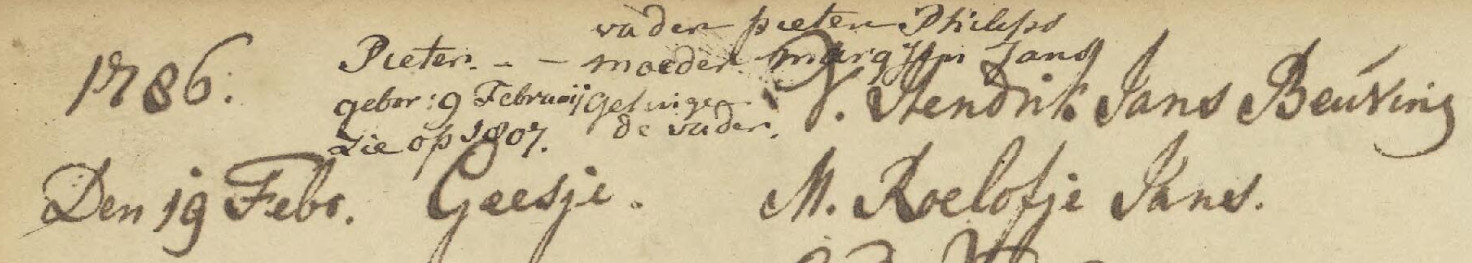 vader pieter Philips
1786. Pieter. - - moeder margjtjen Jans
gebor: 9 Februarij Getuige V. Hendrik Jans Beúving
Zie op 1807. de vader.
Den 19 Febr. Geesje. M. Roelofje Jans.